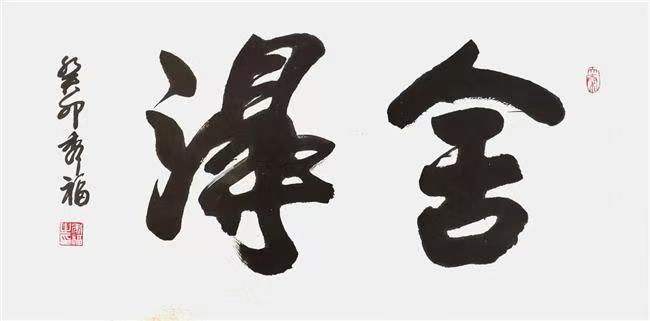 舍得
癸卯福